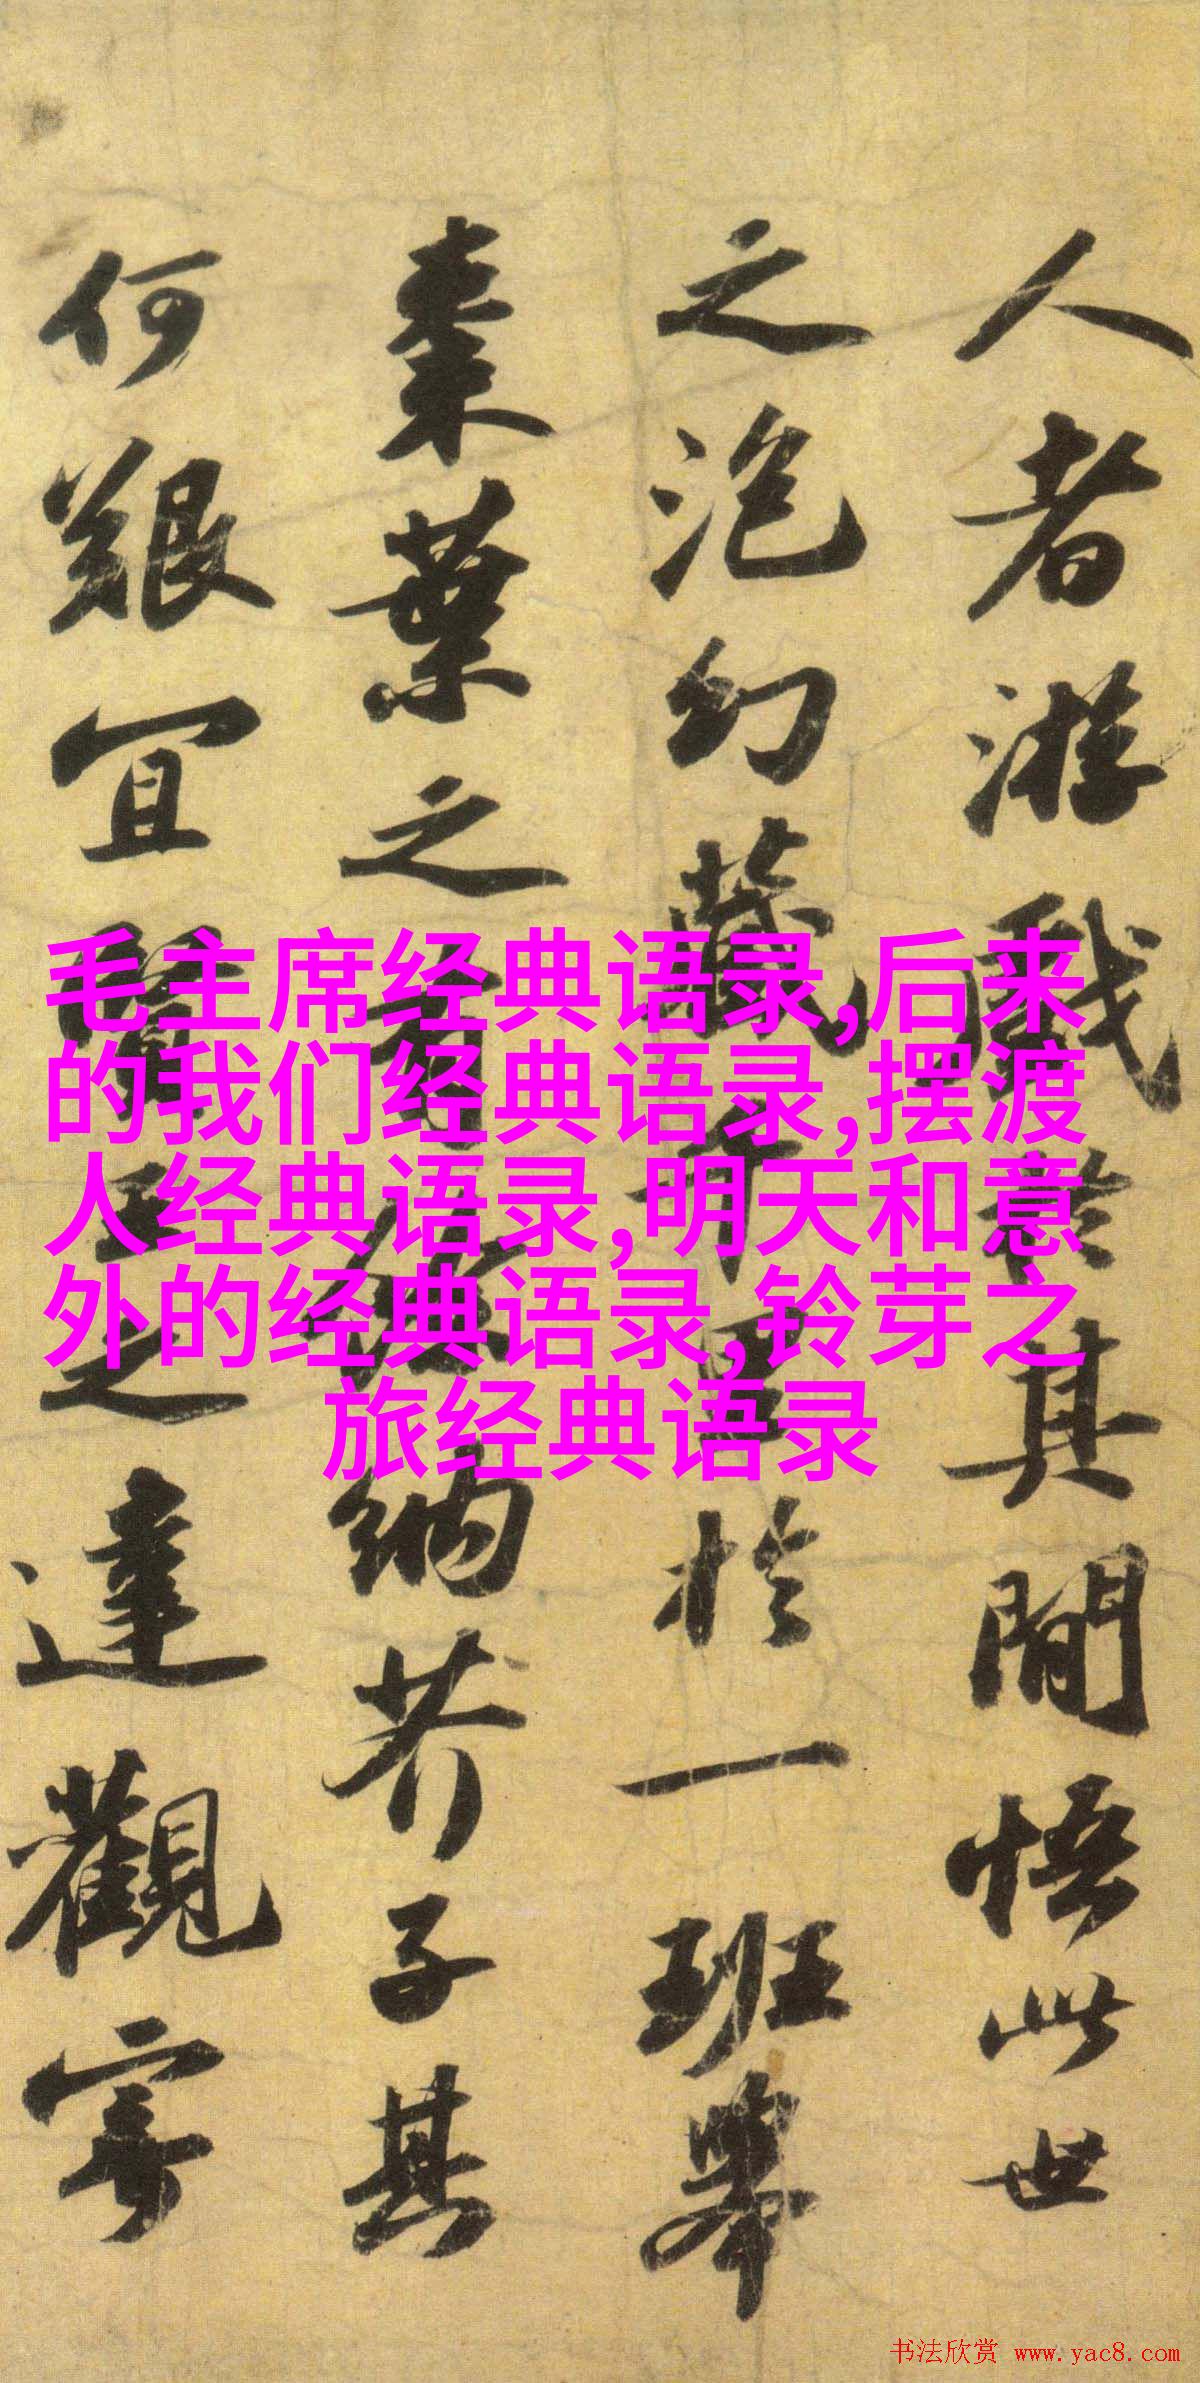 人者游戲於其間悟此世
之泡幻藏千里於一班舉
棗葉之有餘納芥子其
何艱宜賢王之達觀寄
毛主席经典语录,后来
的我们经典语录,摆渡
人经典语录,明天和意
外的经典语录,铃芽之
旅经典语录
书法欣赏 www.yac8.com